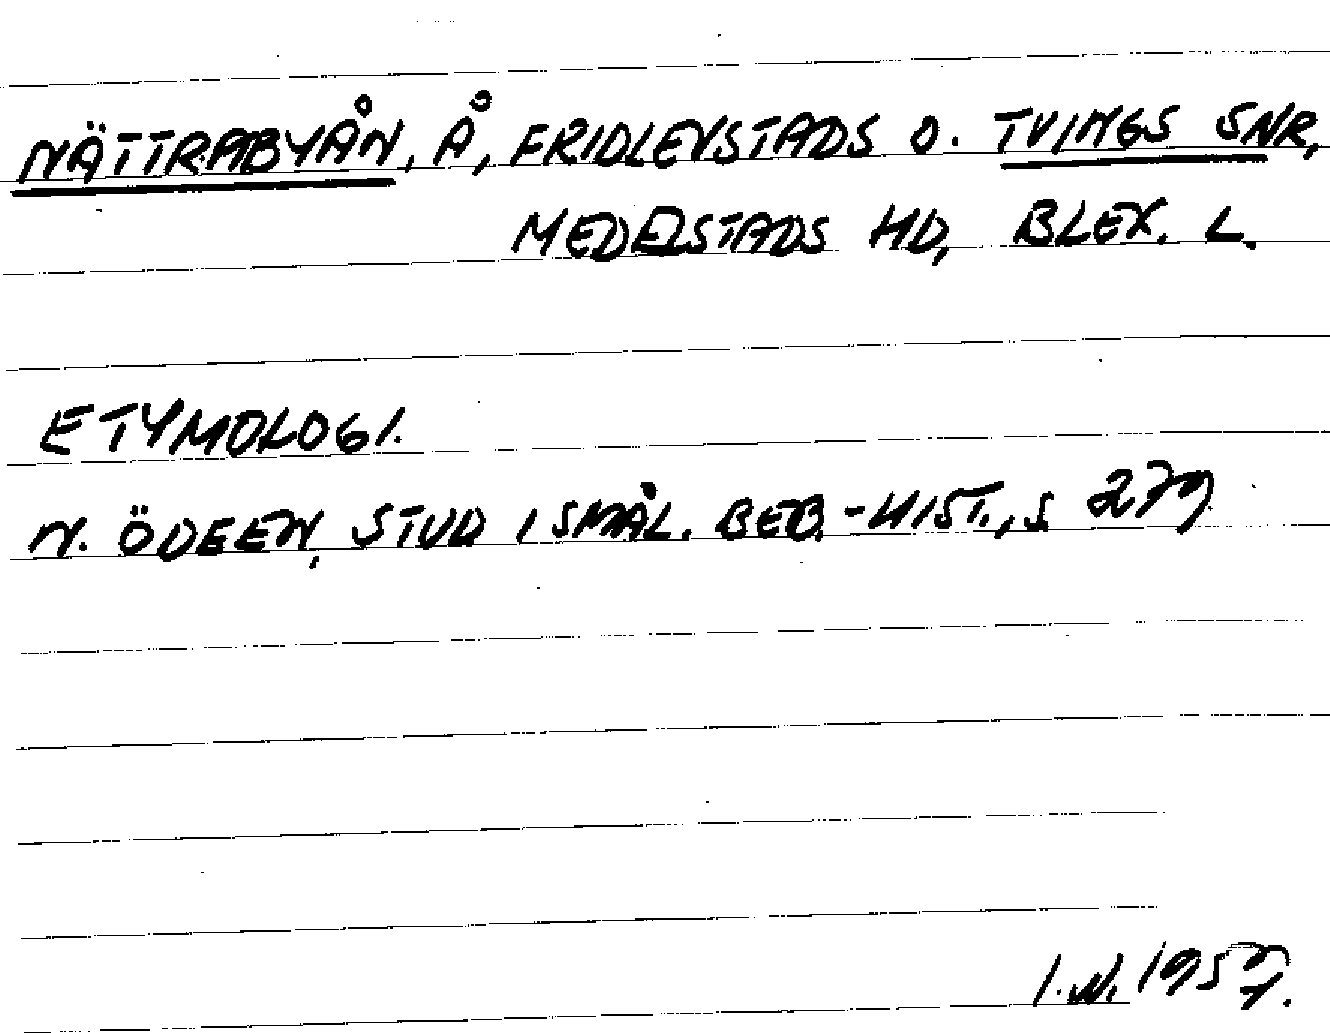 NÄTTRABYÅN, Å, FRIDLEVSTADS O. TVINGS SNR,
MEDELSTADS HD, BLEK. L.
ETYMOLOGI.
N. ÖDEEN, STUD I SMÅL. BEB.-HIST., S. 279
I.N. 1957.